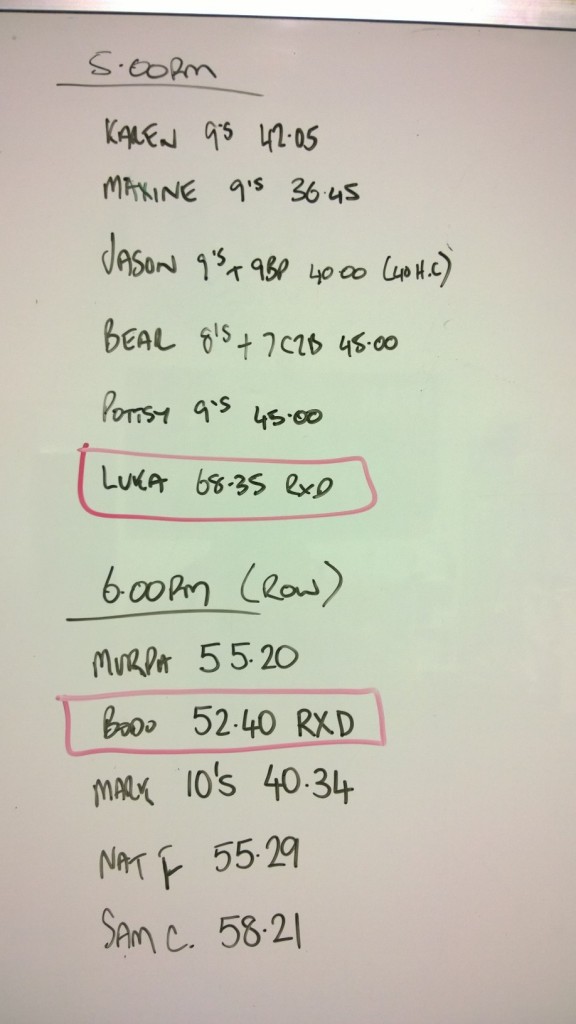 5.00PM
KAREN 9's 42.05
MAXINE 9's 36.45
JASON 9's + 9BP 40.00 (40 H.C)
BEAR 8's + 7C2B 45.00
POTTSY 9's 45.00
LUKA 68.35 RXD
6.00PM (ROW)
MURPA 55.20
BODO 52.40 RXD
MARK 10's 40.34
NAT F 55.29
SAM C. 58.21